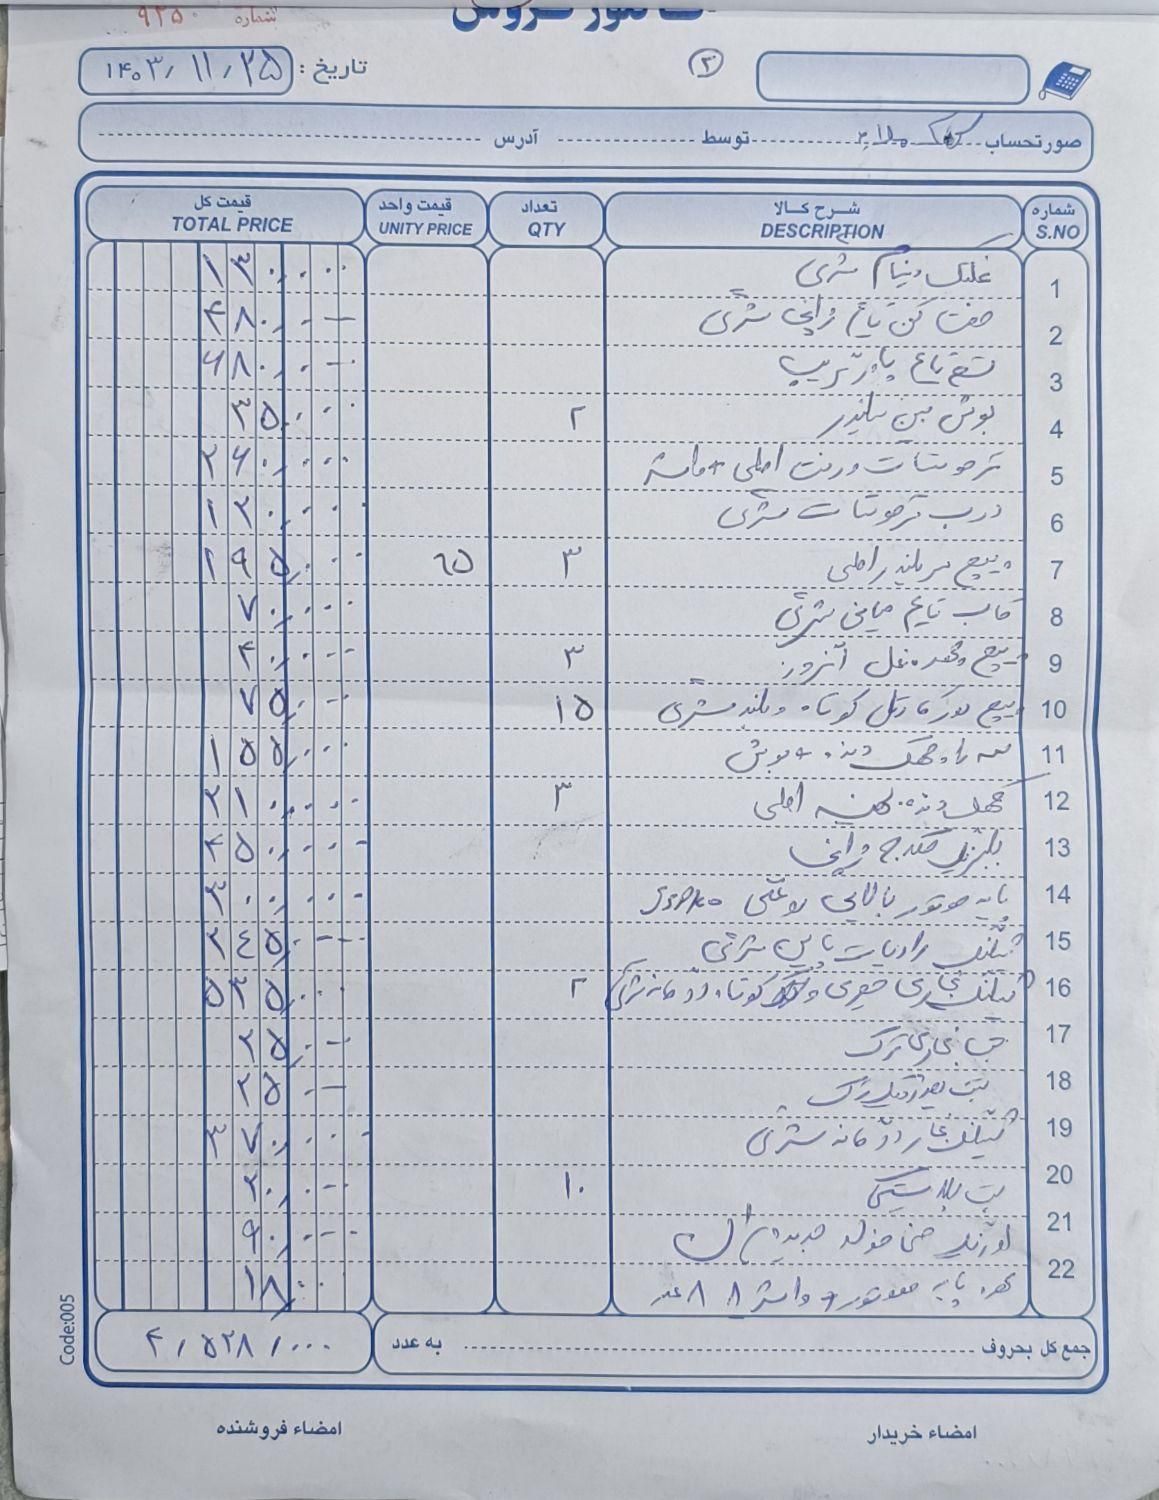 شماره ۹۲۵۰
فاکتور فروش
تاریخ : ۱۴۰۳/۱۱/۲۵
۲
صورتحساب توسط آدرس
شماره S.NO شرح کالا DESCRIPTION تعداد QTY قیمت واحد UNITY PRICE قیمت کل TOTAL PRICE
1 غلتک دینام شرکتی ۱۳۰,۰۰۰
2 هفت کن تایم شرکتی ۴۸۰,۰۰۰
3 تسمه تایم پاورتریپ ۶۸۰,۰۰۰
4 بوش بین سیلندر ۲ ۳۵,۰۰۰
5 ترموستات ورنت اصلی + واشر ۲۶۰,۰۰۰
6 درب ترموستات شرکتی ۱۳۰,۰۰۰
7 پیچ سرسیلندر اصلی ۳ ۶۵ ۱۹۵,۰۰۰
8 قاب تایم میانی شرکتی ۷۰,۰۰۰
9 پیچ مهره بغل اگزوز ۳ ۴۰,۰۰۰
10 پیچ دور کارتل کوتاه و بلند شرکتی ۱۵ ۷۵,۰۰۰
11 سه راه دنده + بوش ۱۵۵,۰۰۰
12 دنده اصلی ۳ ۲۱۰,۰۰۰
13 بلبرینگ کلاج ۴۵۰,۰۰۰
14 پایه موتور بالایی روغنی ۳۰۰,۰۰۰
15 شیلنگ رادیات پایین شرکتی ۲۴۵,۰۰۰
16 شیلنگ بخاری کوتاه ۲ ۵۳۵,۰۰۰
17 بخاری ترک ۲۵,۰۰۰
18 بست ۲۵,۰۰۰
19 شیلنگ بخار شرکتی ۳۷۰,۰۰۰
20 بست پلاستیکی ۱۰ ۲۰,۰۰۰
21 اورینگ ۹۰,۰۰۰
22 مهره پایه موتور + واشر ۸ ۸ عدد ۱۸,۰۰۰
جمع کل بحروف به عدد ۴,۵۲۸,۰۰۰
امضاء خریدار امضاء فروشنده
Code:005